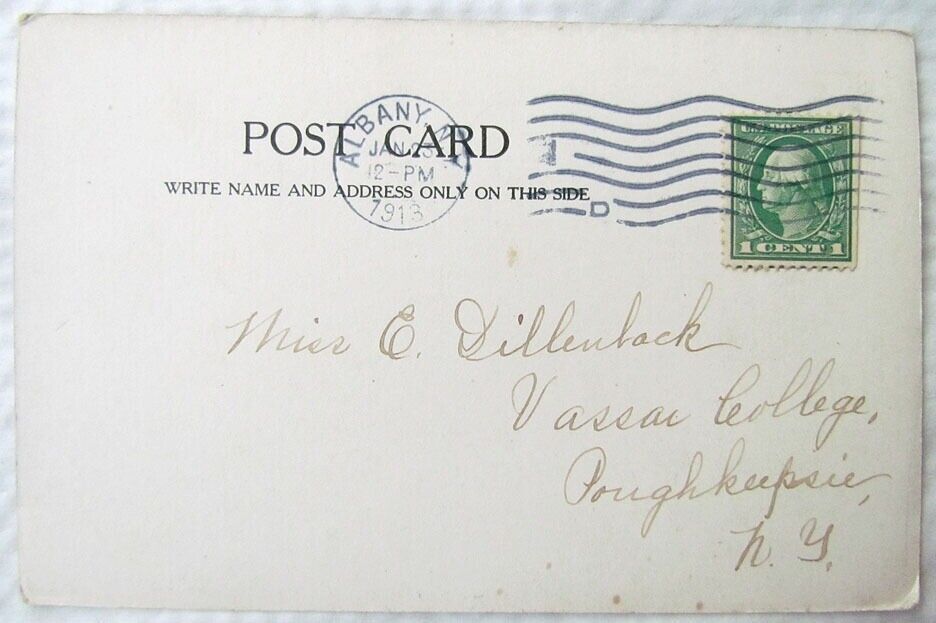 POST CARD
WRITE NAME AND ADDRESS ONLY ON THIS SIDE
ALBANY, N.Y.
JAN 23
12-PM
1913
1
D
U.S. POSTAGE
1 CENT 1
Miss E. Dillenback
Vassar College,
Poughkeepsie,
N. Y.